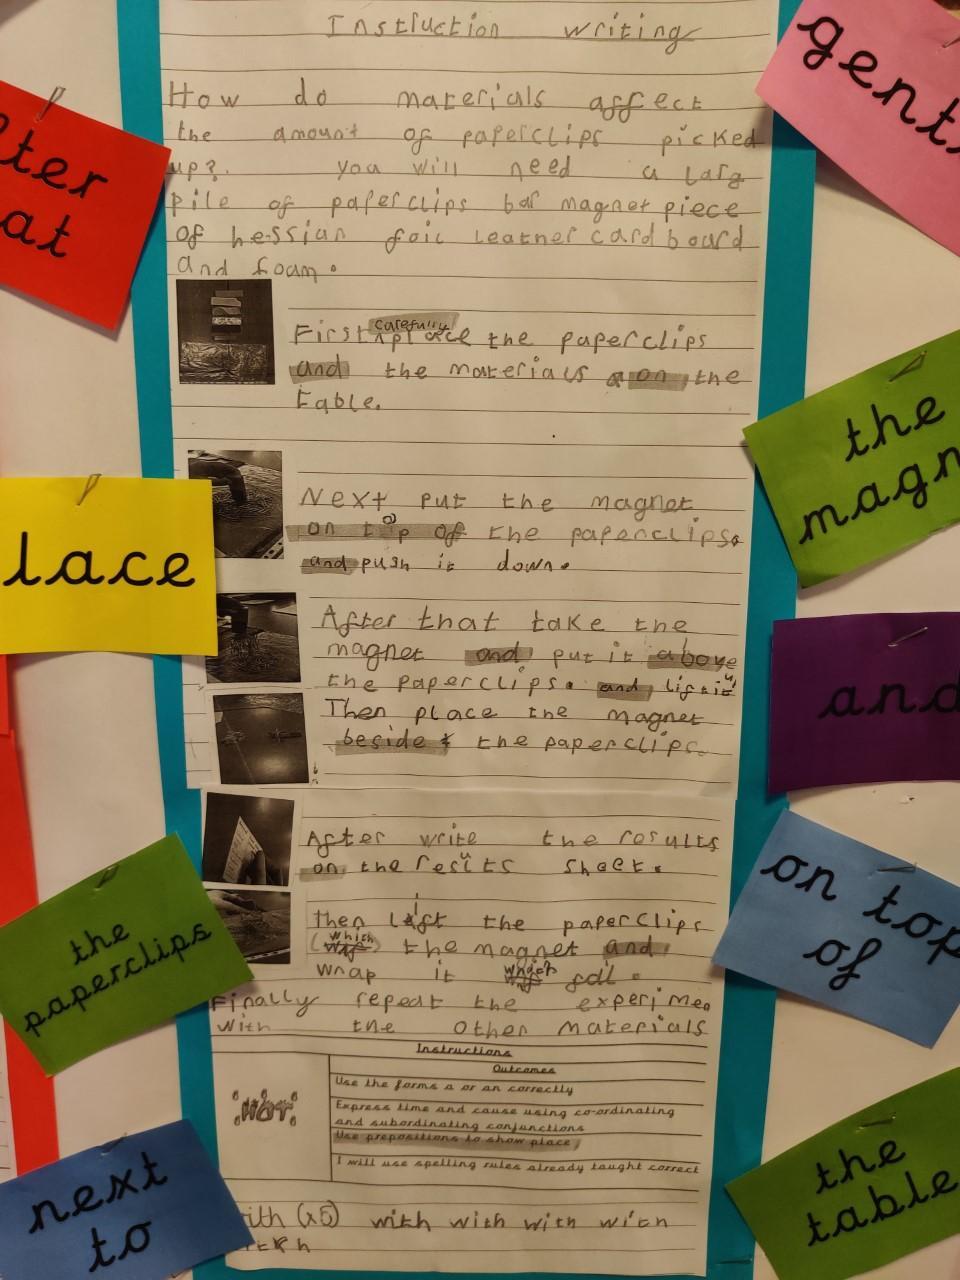 Instruction writing
How do materials affect
the amount of paperclips picked
up?. you will need a larg
pile of paperclips bar magnet piece
of hessian foil leather cardboard
and foam.
carefully
First place the paperclips
and the materials on the
table.
Next put the magnet
on top of the paperclips.
and push it down.
After that take the
magnet and put it above
the paperclips. and lift it
Then place the magnet
beside the paperclips.
After write the results
on the results sheet.
Then lift the paperclips
which the magnet and
wrap it which foil.
Finally repeat the experimen
with the other materials
Instructions
Outcomes
Use the forms a or an correctly
Express time and cause using co-ordinating
and subordinating conjunctions
Use prepositions to show place
I will use spelling rules already taught correct
:Hot:
with (x5) with with with with
ter
at
lace
the
paperclips
next
to
gent
the
magn
and
on top
of
the
table